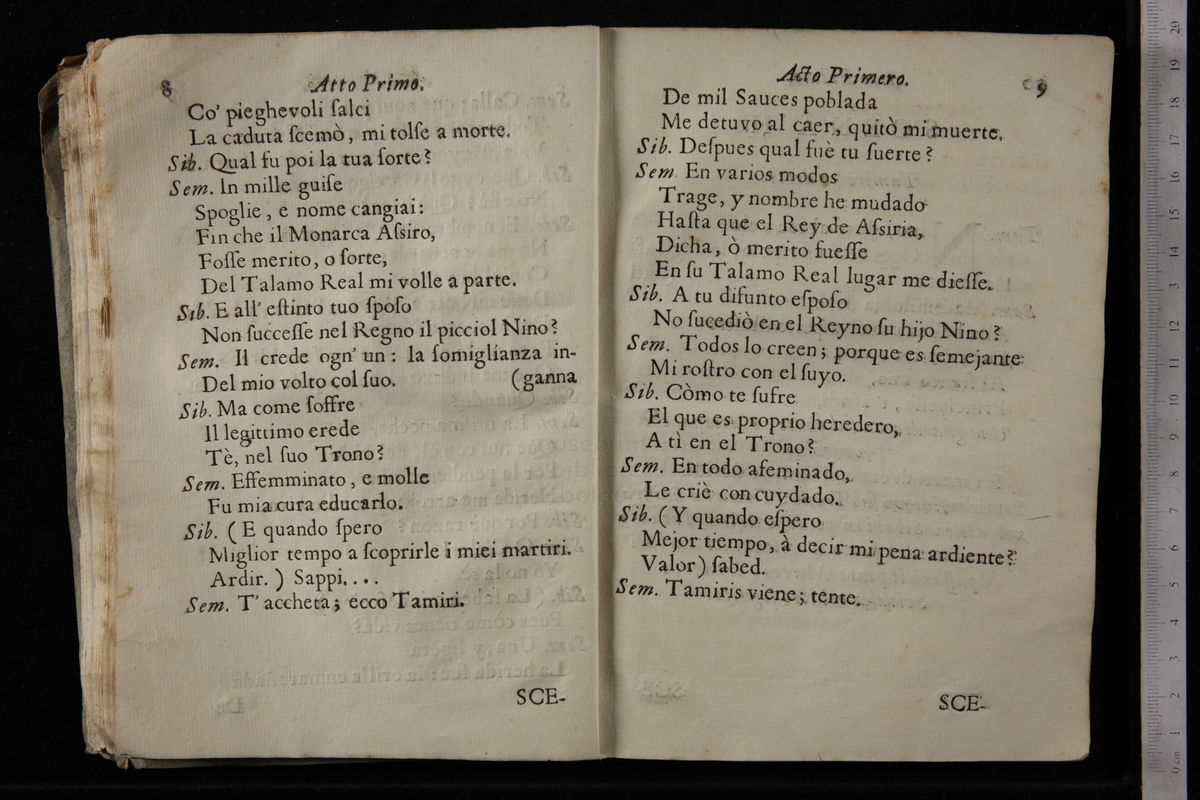 8
Atto Primo.
Co' pieghevoli ſalci
La caduta ſcemò, mi tolſe a morte.
Sib. Qual fu poi la tua ſorte?
Sem. In mille guiſe
Spoglie, e nome cangiai:
Fin che il Monarca Aſsiro,
Foſſe merito, o ſorte,
Del Talamo Real mi volle a parte.
Sib. E all' eſtinto tuo ſpoſo
Non ſucceſſe nel Regno il picciol Nino?
Sem. Il crede ogn' un: la ſomiglianza in-
Del mio volto col ſuo. (ganna
Sib. Ma come ſoffre
Il legittimo erede
Tè, nel ſuo Trono?
Sem. Effemminato, e molle
Fu mia cura educarlo.
Sib. (E quando ſpero
Miglior tempo a ſcoprirle i miei martiri.
Ardir.) Sappi....
Sem. T' accheta; ecco Tamiri.
SCE-
Acto Primero.
9
De mil Sauces poblada
Me detuvo al caer, quitò mi muerte.
Sib. Deſpues qual fuè tu ſuerte?
Sem. En varios modos
Trage, y nombre he mudado
Haſta que el Rey de Aſsiria,
Dicha, ò merito fueſſe
En ſu Talamo Real lugar me dieſſe.
Sib. A tu difunto eſpoſo
No ſucediò en el Reyno ſu hijo Nino?
Sem. Todos lo creen; porque es ſemejante
Mi roſtro con el ſuyo.
Sib. Còmo te ſufre
El que es proprio heredero,
A tì en el Trono?
Sem. En todo afeminado,
Le criè con cuydado.
Sib. (Y quando eſpero
Mejor tiempo, à decir mi pena ardiente?
Valor) ſabed.
Sem. Tamiris viene; tente.
SCE-